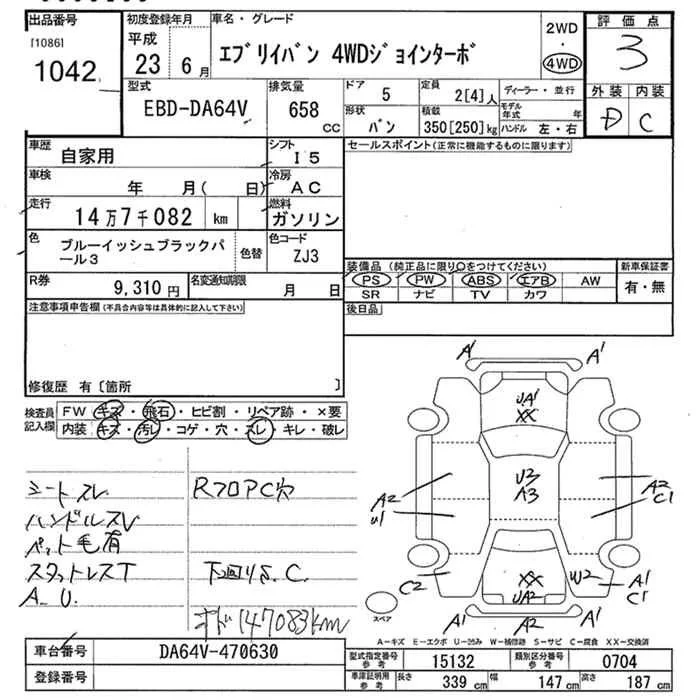 出品番号
[1086]
1042
初度登録年月
平成
23 6月
車名・グレード
エブリイバン 4WDジョインターボ
2WD
・
4WD
評価点
3
型式
EBD-DA64V
排気量
658
CC
ドア
5
定員
2[4]人
ディーラー・並行
モデル年式 年
形状
バン
積載
350[250]kg
ハンドル 左・右
外装 内装
D C
車歴
自家用
シフト
I5
セールスポイント(正常に機能するものに限ります)
車検
年 月( 日)
冷房
AC
走行
14万7千082 km
燃料
ガソリン
色
ブルーイッシュブラックパール3
色替
色コード
ZJ3
装備品(純正品に限り○をつけてください)
新車保証書
PS PW ABS エアB AW
有・無
SR ナビ TV カワ
R券
9,310円
名変通知期限
月 日
後日品
注意事項申告欄(不具合内容等は具体的に記入して下さい)
修復歴 有〔箇所 〕
検査員記入欄
FW キズ・飛石・ヒビ割・リペア跡・×要
内装 キズ・汚レ・コゲ・穴・スレ・キレ・破レ
シートスレ
RフロアC穴
ハンドルスレ
ペット毛有
スタットレスT
下回りS.C.
A U.
オド147083km
A1 A1
UA1
XX
U2
A3
A2
U1
A2
C1
C2
XX
UA2
W2
A1
C1
A1 A2 A1
スペア
A−キズ E−エクボ U−凹み W−補修跡 S−サビ C−腐食 XX−交換済
車台番号
DA64V-470630
登録番号
型式指定番号
参考
15132
類別区分番号
参考
0704
車庫証明用
参考
長さ 339cm 幅 147cm 高さ 187cm